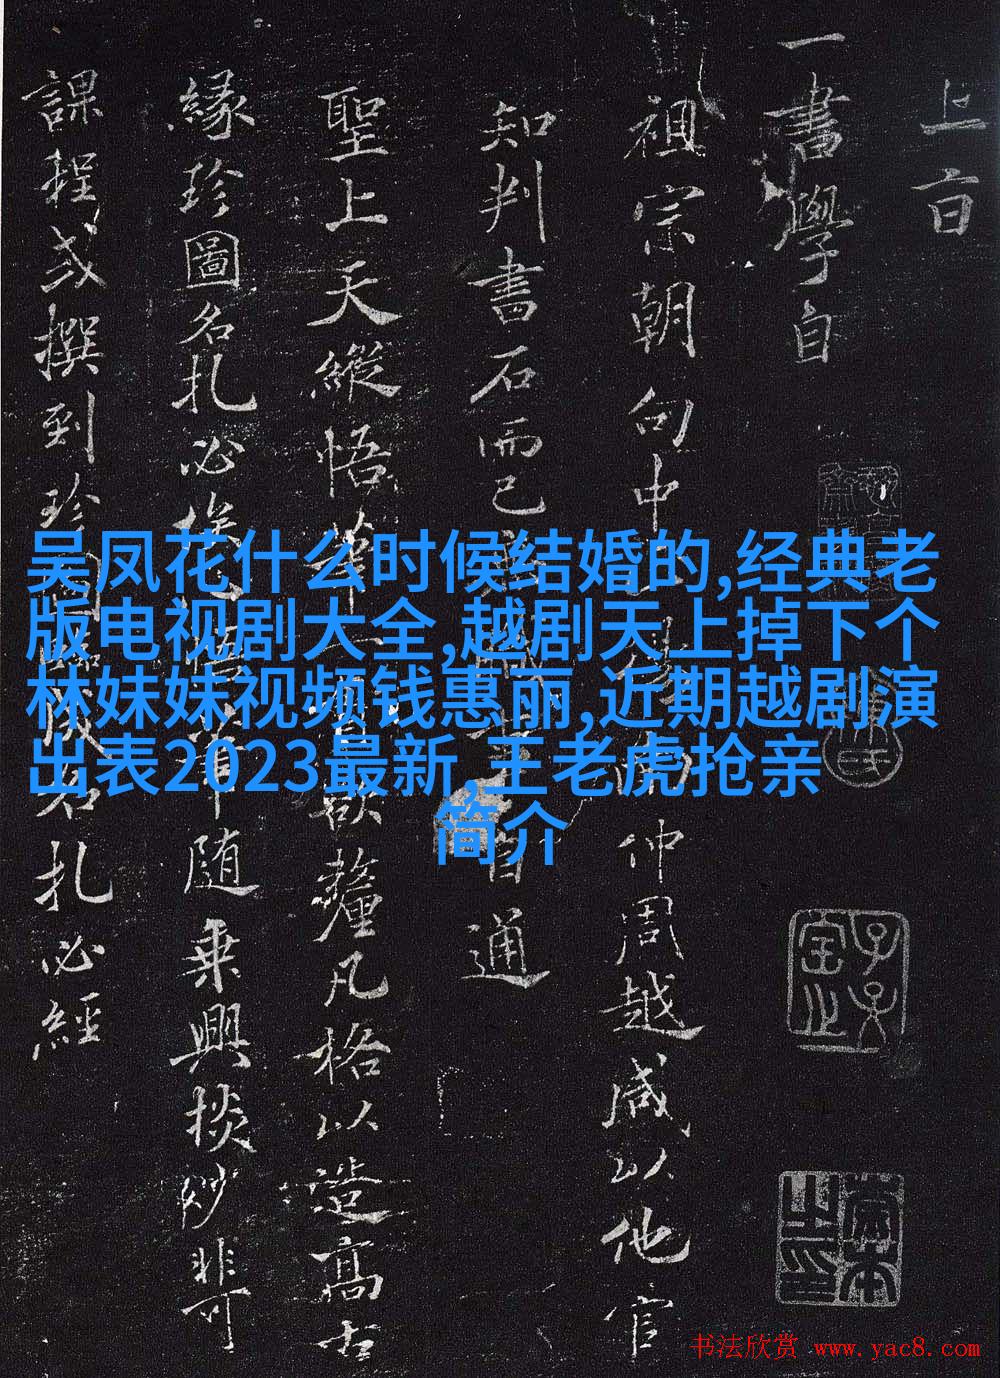 上曰
一書學自
祖宗朝向中 仲周越咸以他官
知判書石而已 自通
聖上天縱悟筆 欲釐凡格以造髙古
縁珍圖名札必 随乗興掞妙非可
課程或撰到珍圖 名札必經
吴凤花什么时候结婚的,经典老
版电视剧大全,越剧天上掉下个
林妹妹视频钱惠丽,近期越剧演
出表2023最新,王老虎抢亲
简介
书法欣赏 www.yac8.com